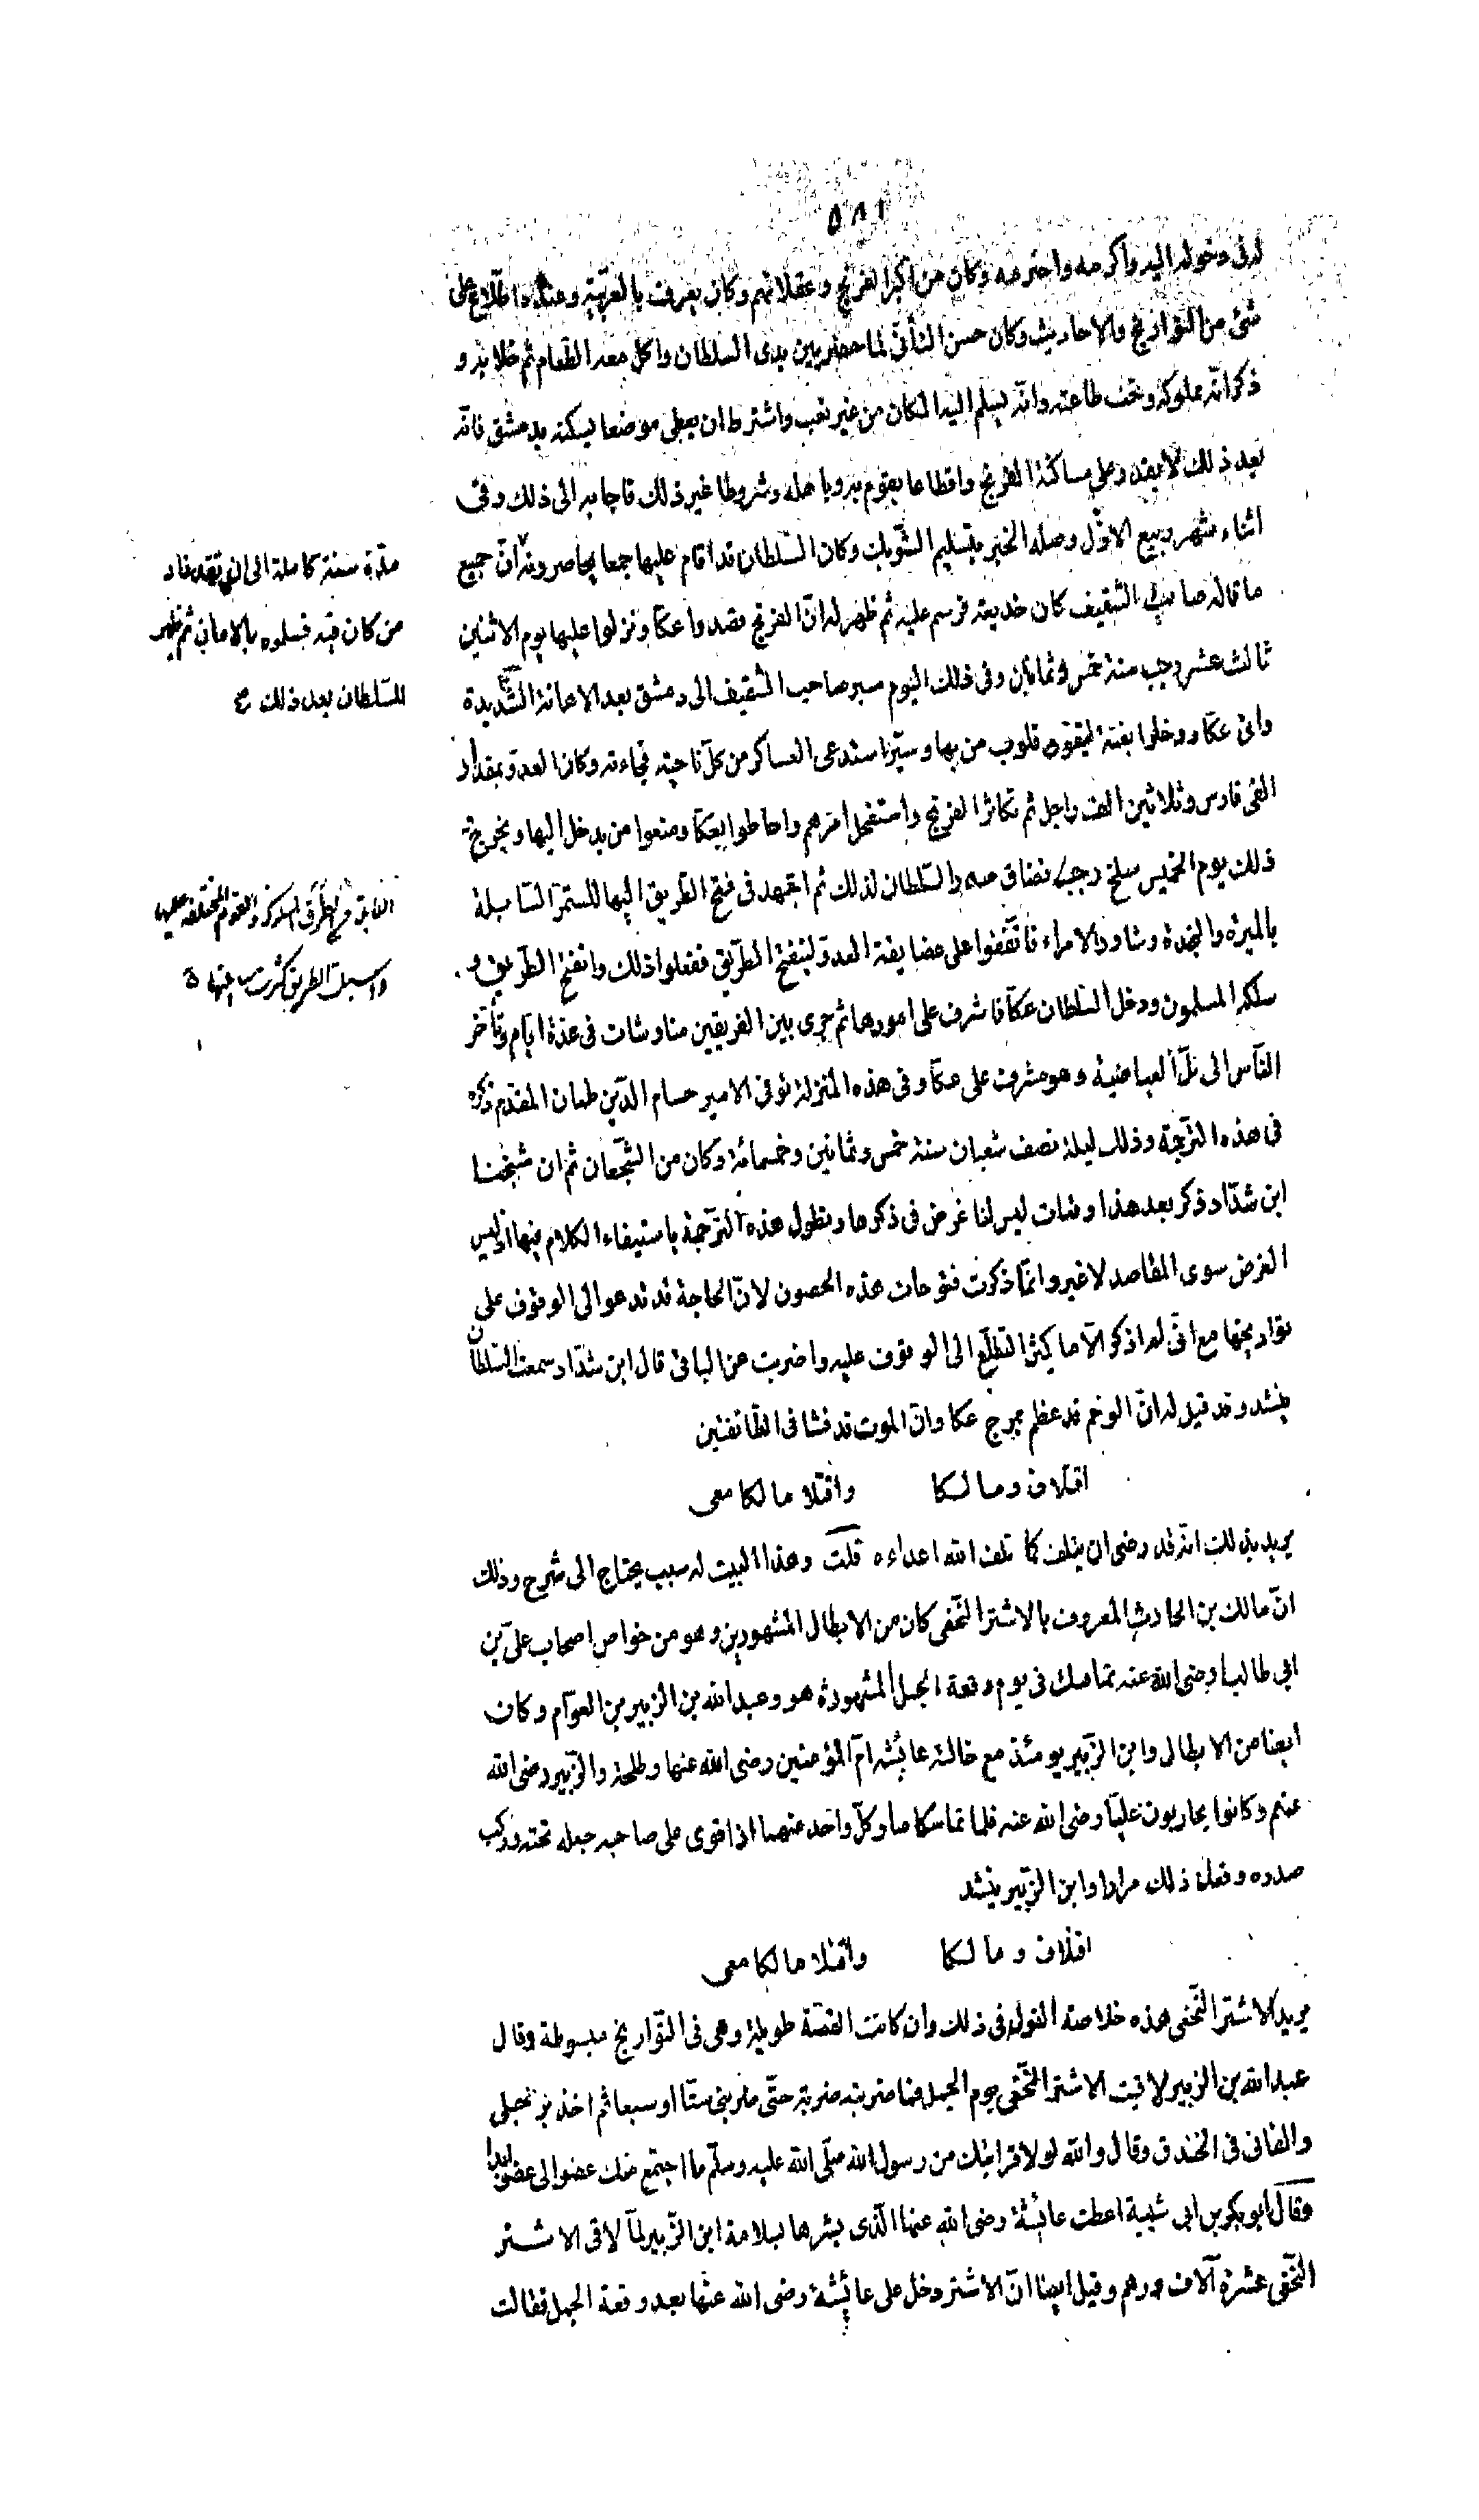 ٥٨١
له في دخوله اليه واكرمه واحترمه وكان من اكبر الفرنج وعقلائهم وكان يعرف بالعربية وعنده اطلاع على
شئ من التواريخ والاحاديث وكان حسن التأنى لما حضر بين يدى السلطان واكل معه الطعام ثم خلا به و
ذكر انّه مملوكه وتحت طاعته وانّه يسلم اليه المكان من غير تعب واشترط ان يعطى موضعا يسكنه بدمشق فانّه
بعد ذلك لا يقدر على مساكنة الفرنج واقطاعا يقوم به وباهله وشروطا غير ذلك فاجابه الى ذلك وفى
اثناء شهر ربيع الاوّل وصله الخبر بتسليم الشّوبك وكان السّلطان قد اقام عليها جمعا يحاصرونه انّ جميع
مدّة سنة كاملة الى ان نفد زاد
من كان فيه فسلموه بالامان ثم ظهر
للسّلطان بعد ذلك
ما قاله صاحب الشقيف كان خديعة فرسم عليه ثم ظهر له انّ الفرنج قصدوا عكّا ونزلوا عليها يوم الاثنين
ثالث عشر رجب سنة خمس وثمانين وفى ذلك اليوم سير صاحب الشقيف الى دمشق بعد الاهانة الشّديدة
واتى عكّا ودخلها بغتة ليقوى قلوب من بها وسيّر استدعى العساكر من كلّ ناحية فجاءته وكان العدوّ بمقدار
الفى فارس وثلاثين الف راجل ثم تكاثر الفرنج واستفحل امرهم واحاطوا بعكّا ومنعوا من يدخل اليها ويخرج
ذلك يوم الخميس سلخ رجب فضاق صدر السّلطان لذلك ثم اجتهد فى فتح الطريق اليها لتستمرّ السّابلة
بالميرة والنجدة وشاور الامراء فاتّفقوا على مضايقة العدوّ لينفتح الطّريق ففعلوا ذلك وانفتح الطّريق و
سلكه المسلمون ودخل السّلطان عكّا فاشرف على امورها ثم جرى بين الفريقين مناوشات فى عدّة ايّام وتأخّر
النّاس الى تلّ العياضية وهو مشرف على عكّا وفى هذه المنزلة توفى الامير حسام الدّين طمان المقدم ذكره
فى هذه التّرجمة وذلك ليلة نصف شعبان سنة خمس وثمانين وخمسمائة وكان من الشّجعان ثم ان شيخنا
ابن شدّاد ذكر بعد هذا وقعات ليس لنا غرض فى ذكرها وتطول هذه التّرجمة باستيفاء الكلام فيها اذ ليس
الغرض سوى المقاصد لا غير وانّما ذكرت فتوحات هذه الحصون لانّ الحاجة قد تدعو الى الوقوف على
تواريخها مع انّى لم اذكر الّا ما يكثر التطلّع الى الوقوف عليه واضربت عن الباقى قال ابن شدّاد سمعت السّلطان
ينشد وقد قيل له انّ الوخم قد عظم بمرج عكا وانّ الموت قد فشا فى الطّائفتين
اقتلانى ومالكا واقتلا مالكا معى
يريد بذلك انّه قد رضى ان يتلف كما تلف الله اعداءه قلت وهذا البيت له سبب يحتاج الى شرح وذلك
انّ مالك بن الحارث المعروف بالاشتر النّخعى كان من الابطال المشهورين وهو من خواص اصحاب علىّ بن
ابى طالب رضى الله عنه تماسك فى يوم وقعة الجمل المشهورة هو وعبد الله بن الزّبير بن العوّام وكان
ايضا من الابطال وابن الزّبير يومئذ مع خالته عائشة امّ المؤمنين رضى الله عنها وطلحة والزّبير رضى الله
عنهم وكانوا يحاربون عليّا رضى الله عنه فلما تماسكا صار كلّ واحد منهما اذا قوى على صاحبه جعله تحته وركب
صدره وفعلا ذلك مرارا وابن الزّبير ينشد
اقتلانى ومالكا واقتلا مالكا معى
يريد الاشتر النّخعى هذه خلاصة القول فى ذلك وان كانت القصّة طويلة وهى فى التّواريخ مبسوطة وقال
عبد الله بن الزبير لاقيت الاشتر النّخعى يوم الجمل فما ضربته ضربة حتّى ضربنى ستّا او سبعا ثم اخذ برجلى
والقانى فى الخندق وقال والله لولا قرابتك من رسول الله صلّى الله عليه وسلّم ما اجتمع منك عضو الى عضو ابدا
وقال ابو بكر بن ابى شيبة اعطت عائشة رضى الله عنها الّذى بشرها بسلامة ابن الزّبير لمّا لاقى الاشتر
النّخعى عشرة آلاف درهم وقيل ايضا انّ الاشتر دخل على عائشة رضى الله عنها بعد وقعة الجمل فقالت